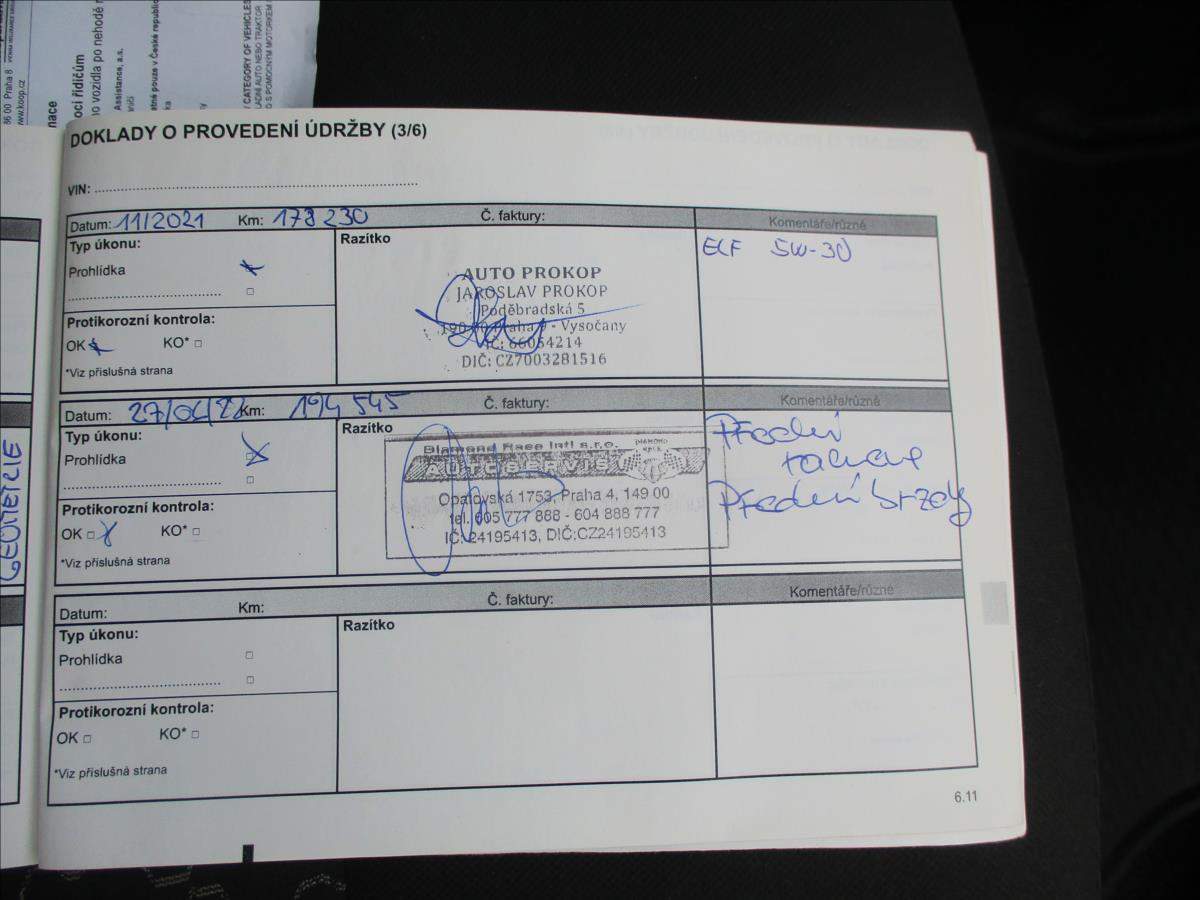 86 00 Praha 8
www.koop.cz
nace
oci řidičům
o vozidla po nehodě
Assistance, a.s.
tné pouze v České republic
CATEGORY OF VEHICLES
LADNÍ AUTO NEBO TRAKTOR
S POMOCNÝM MOTORKEM
GEOMETRIE
DOKLADY O PROVEDENÍ ÚDRŽBY (3/6)
VIN:
Datum: 11/2021 Km: 178 230 Č. faktury: Komentáře/různé
Typ úkonu:
Prohlídka
Protikorozní kontrola:
OK KO* □
*Viz příslušná strana
Razítko
AUTO PROKOP
JAROSLAV PROKOP
Poděbradská 5
190 00 Praha 9 - Vysočany
IČ: 66054214
DIČ: CZ7003281516
ELF 5W-30
Datum: 27/04/22 Km: 194 545 Č. faktury: Komentáře/různé
Typ úkonu:
Prohlídka
Protikorozní kontrola:
OK □ KO* □
*Viz příslušná strana
Razítko
Diamond Race Intl s.r.o.
AUTOSERVIS
Opatovská 1753, Praha 4, 149 00
tel. 605 777 888 - 604 888 777
IČ: 24195413, DIČ:CZ24195413
Přední
Přední brzdy
Datum: Km: Č. faktury: Komentáře/různé
Typ úkonu:
Prohlídka □
□
Protikorozní kontrola:
OK □ KO* □
*Viz příslušná strana
Razítko
6.11